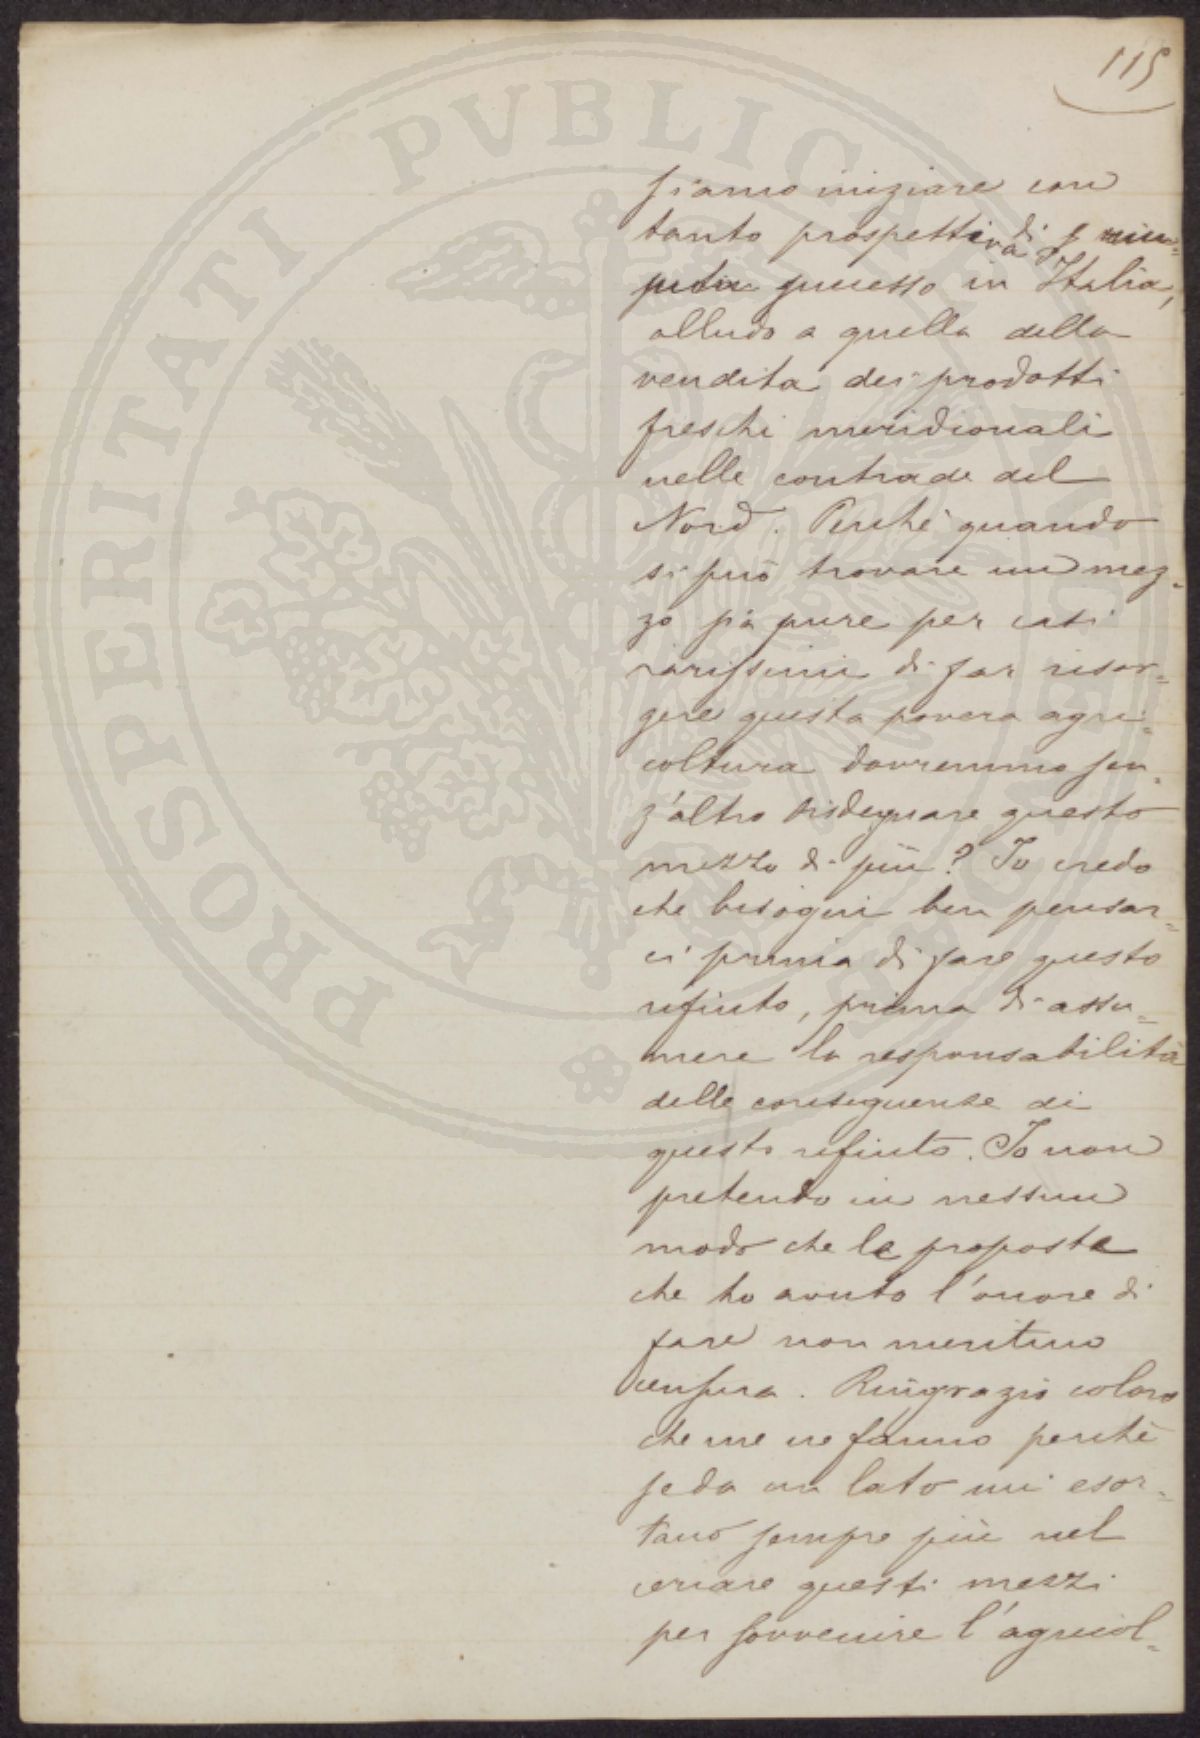 115
siamo iniziare con
tanto prospettiva di
successo in Italia,
alludo a quella della
vendita dei prodotti
freschi meridionali
nelle contrade del
Nord. Perchè quando
si può trovare un mez-
zo sia pure per casi
rarissimi di far risor=
gere questa povera agri-
coltura dovremmo sen-
z'altro disdegnare questo
mezzo di più? Io credo
che bisogni ben pensar=
ci prima di fare questo
rifiuto, prima di assu=
mere la responsabilità
delle conseguenze di
questo rifiuto. Io non
pretendo in nessun
modo che le proposte
che ho avuto l'onore di
fare non meritino
censura. Ringrazio coloro
che me ne fanno perchè
se da un lato mi esor=
tano sempre più nel
cercare questi mezzi
per sovvenire l'agricol=
PROSPERITATI PVBLICAE AVGENDAE